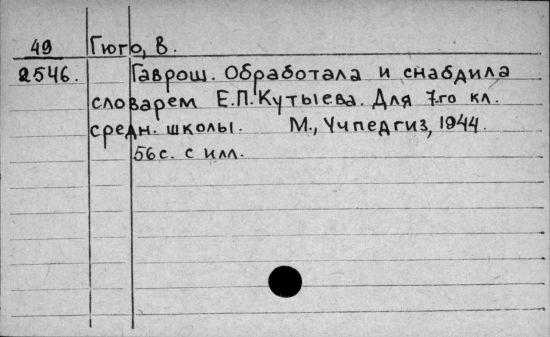 49 Гюго, В.
2546. Гаврош. Обработала и снабдила
словарем Е.П.Кутыева. Для 7-го кл.
средн. школы. М., Учпедгиз, 1944.
56с. с илл.